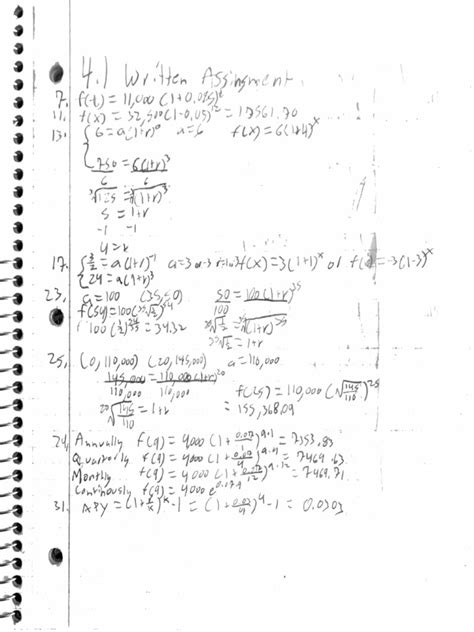 4.1 Written Assingment
7. f(t) = 11,000 (1+0.085)^t
11. f(x) = 32,500(1-0.05)^12 = 17561.70
13. { 6 = a(1+r)^0 a=6 f(x) = 6(1+4)^x
750 = 6(1+r)^3
6 6
∛125 = ∛(1+r)^3
5 = 1+r
-1 -1
4 = r
17. { 3/2 = a(1+r)^-1 a=3 or -3 f(x) = 3(1+1)^x or f(x) = -3(1-3)^x
{ 24 = a(1+r)^3
23. a = 100 (35,50) 50 = 100(1+r)^35
100
f(54) = 100(1/2)^54
100 = 34.32
= 1+r
25. (0,110,000) (20,145,000) a = 110,000
145,000 = 110,000(1+r)^20
110,000 110,000
f(25) = 110,000 (√145/110)^25
20√145/110 = 1+r
= 155,368.09
Annually f(9) = 4000 (1+0.07/1)^9·1 = 7353.83
Quarterly f(9) = 4000 (1+0.07/4)^9·4 = 7469.63
Monthly f(9) = 4000 (1+0.07/12)^9·12
Continously f(9) = 4000 e^0.07·9
31. APY = (1+r/k)^k -1 = (1+0.03/4)^4 -1 = 0.0303